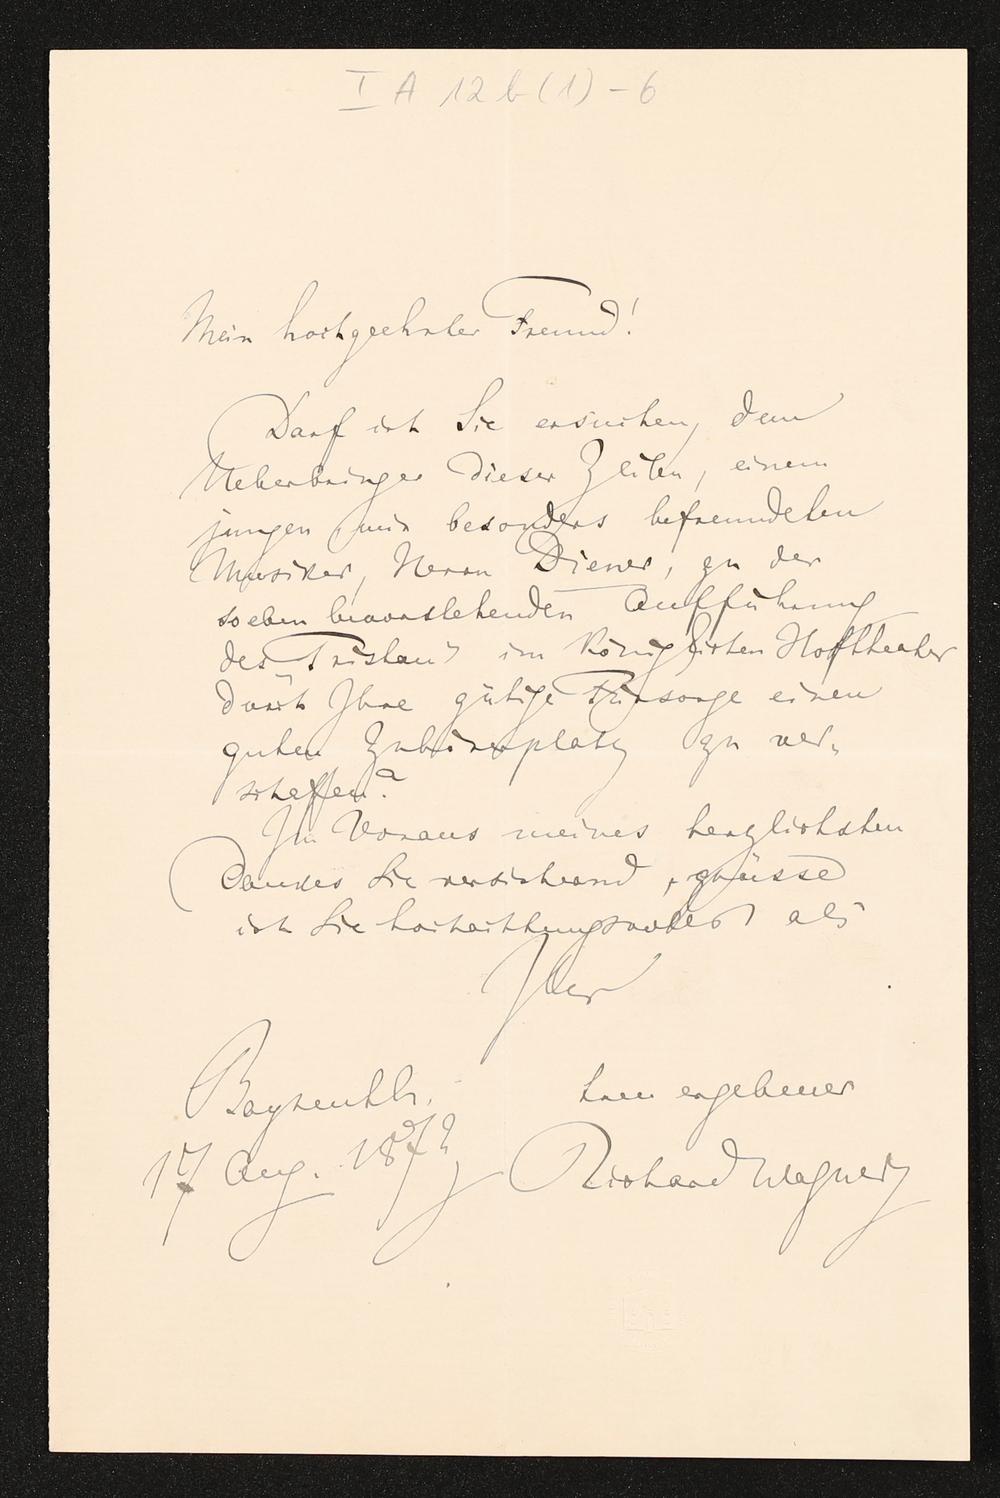 I A 12 b (1) - 6
Mein hochgeehrter Freund!
Darf ich Sie ersuchen, dem
Ueberbringer dieser Zeilen, einem
jungen, mir besonders befreundeten
Musiker, Herrn Diener, zu der
soeben bevorstehenden Aufführung
des Tristan's im Königlichen Hoftheater
durch Ihre gütige Fürsorge einen
guten Zuhörerplatz zu ver-
schaffen?
Im Voraus meines herzlichsten
Dankes Sie versichernd, grüsse
ich Sie hochachtungsvollst als
Ihr
Bayreuth. treu ergebener
17 Aug. 1872 Richard Wagner